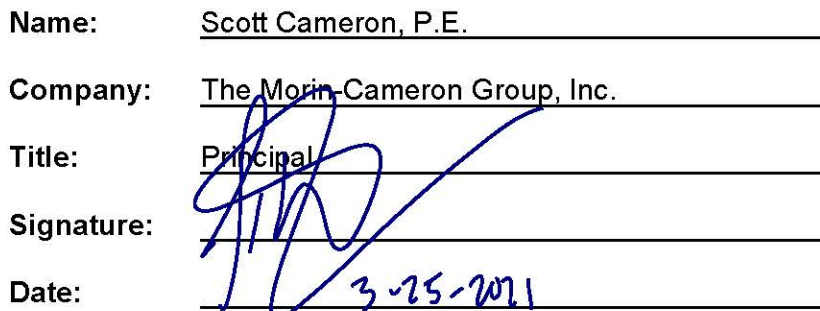 Name: Scott Cameron, P.E.
Company: The Morin-Cameron Group, Inc.
Title: Principal
Signature:
Date: 3-25-2021